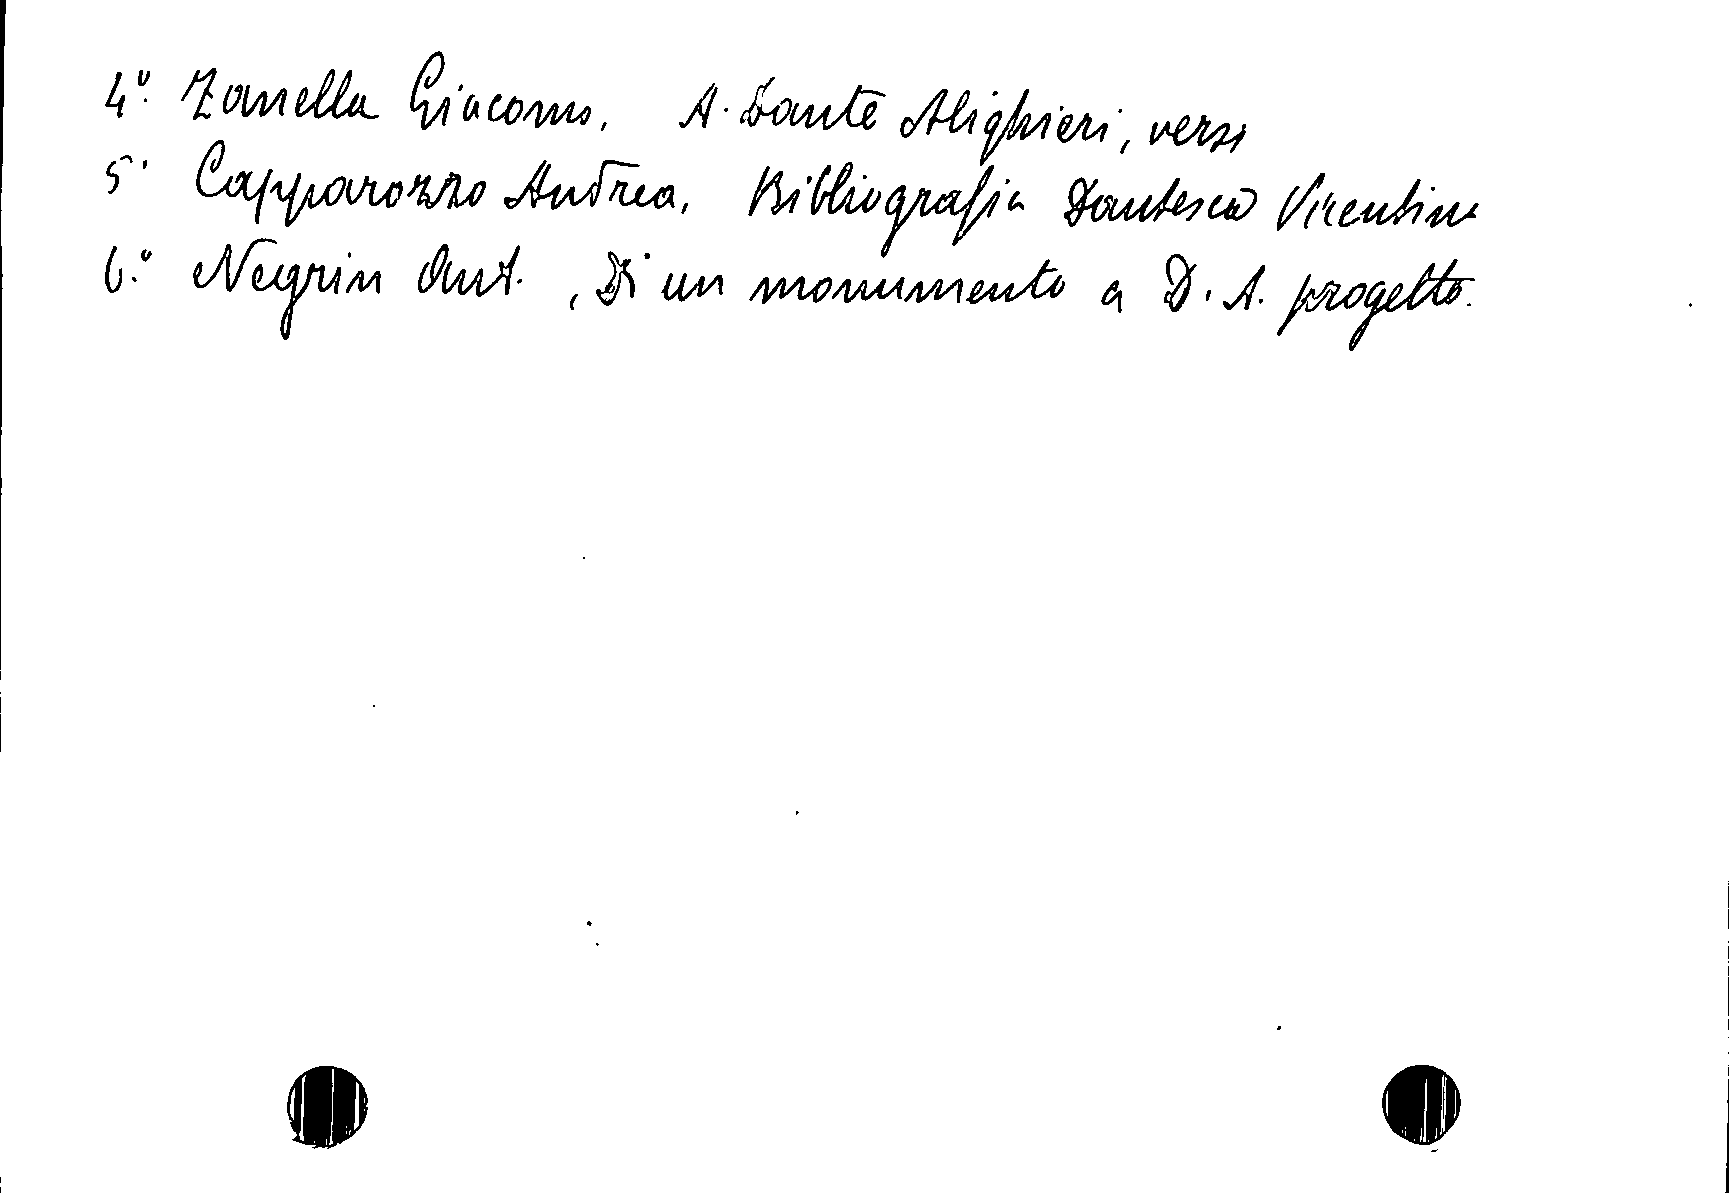 4º. Zanella Giacomo, A. Dante Alighieri, versi
5º Capparozzo Andrea, Bibliografia Dantesca Vicentina
6.º Negrin Ant. , Di un monumento a D. A. progetto.